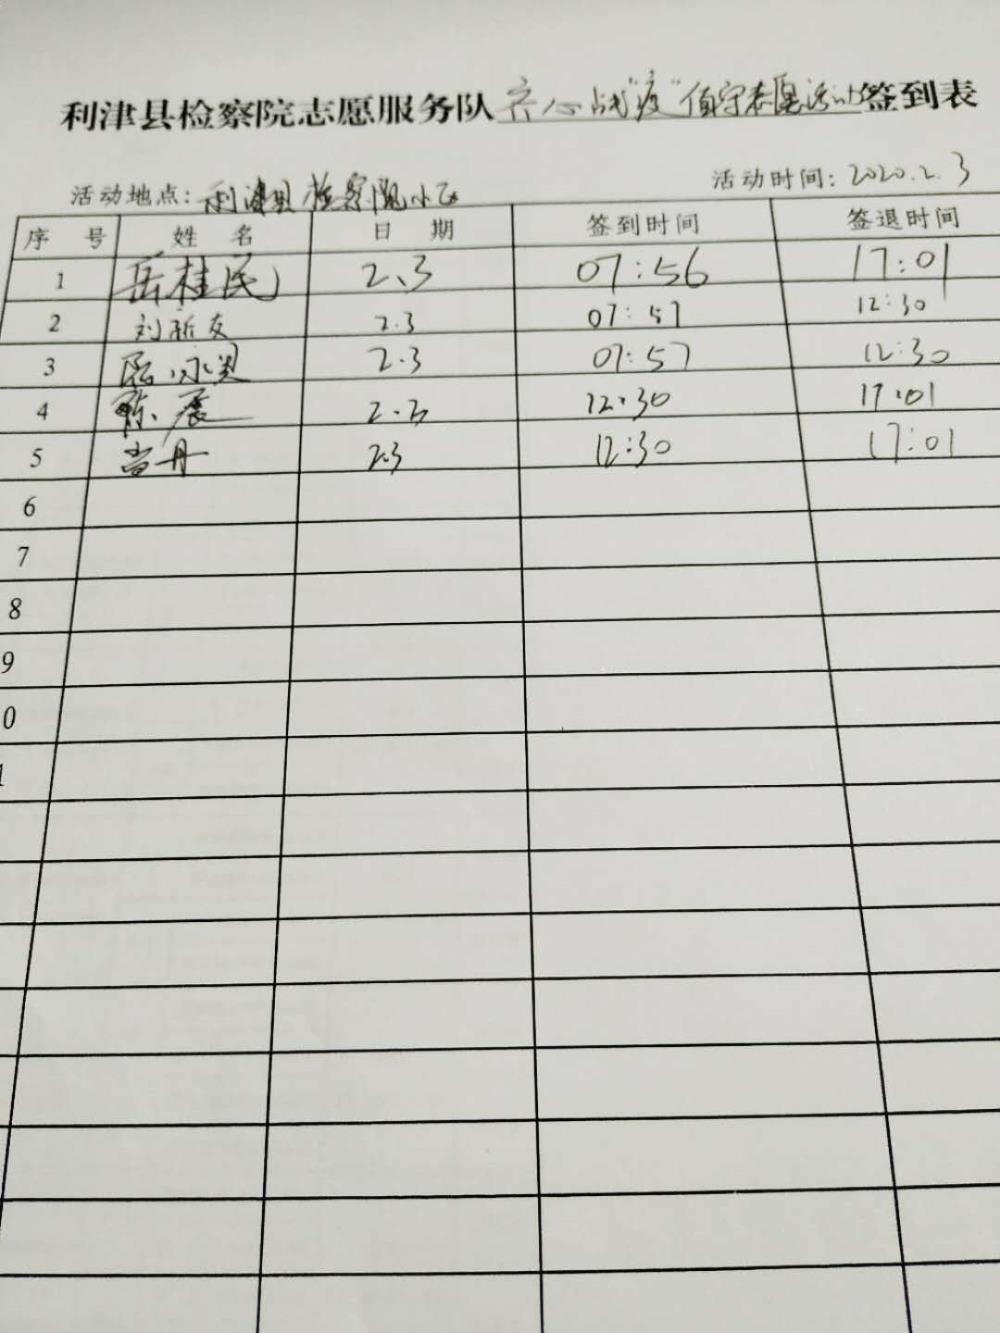 利津县检察院志愿服务队齐心战"疫"值守志愿活动签到表
活动地点: 利津县检察院小区 活动时间: 2020.2.3
序号 姓名 日期 签到时间 签退时间
1 岳桂民 2.3 07:56 17:01
2 刘新友 2.3 07:57 12:30
3 2.3 07:57 12:30
4 陈展 2.3 12:30 17:01
5 尚丹 2.3 12:30 17:01
6
7
8
9
0
1